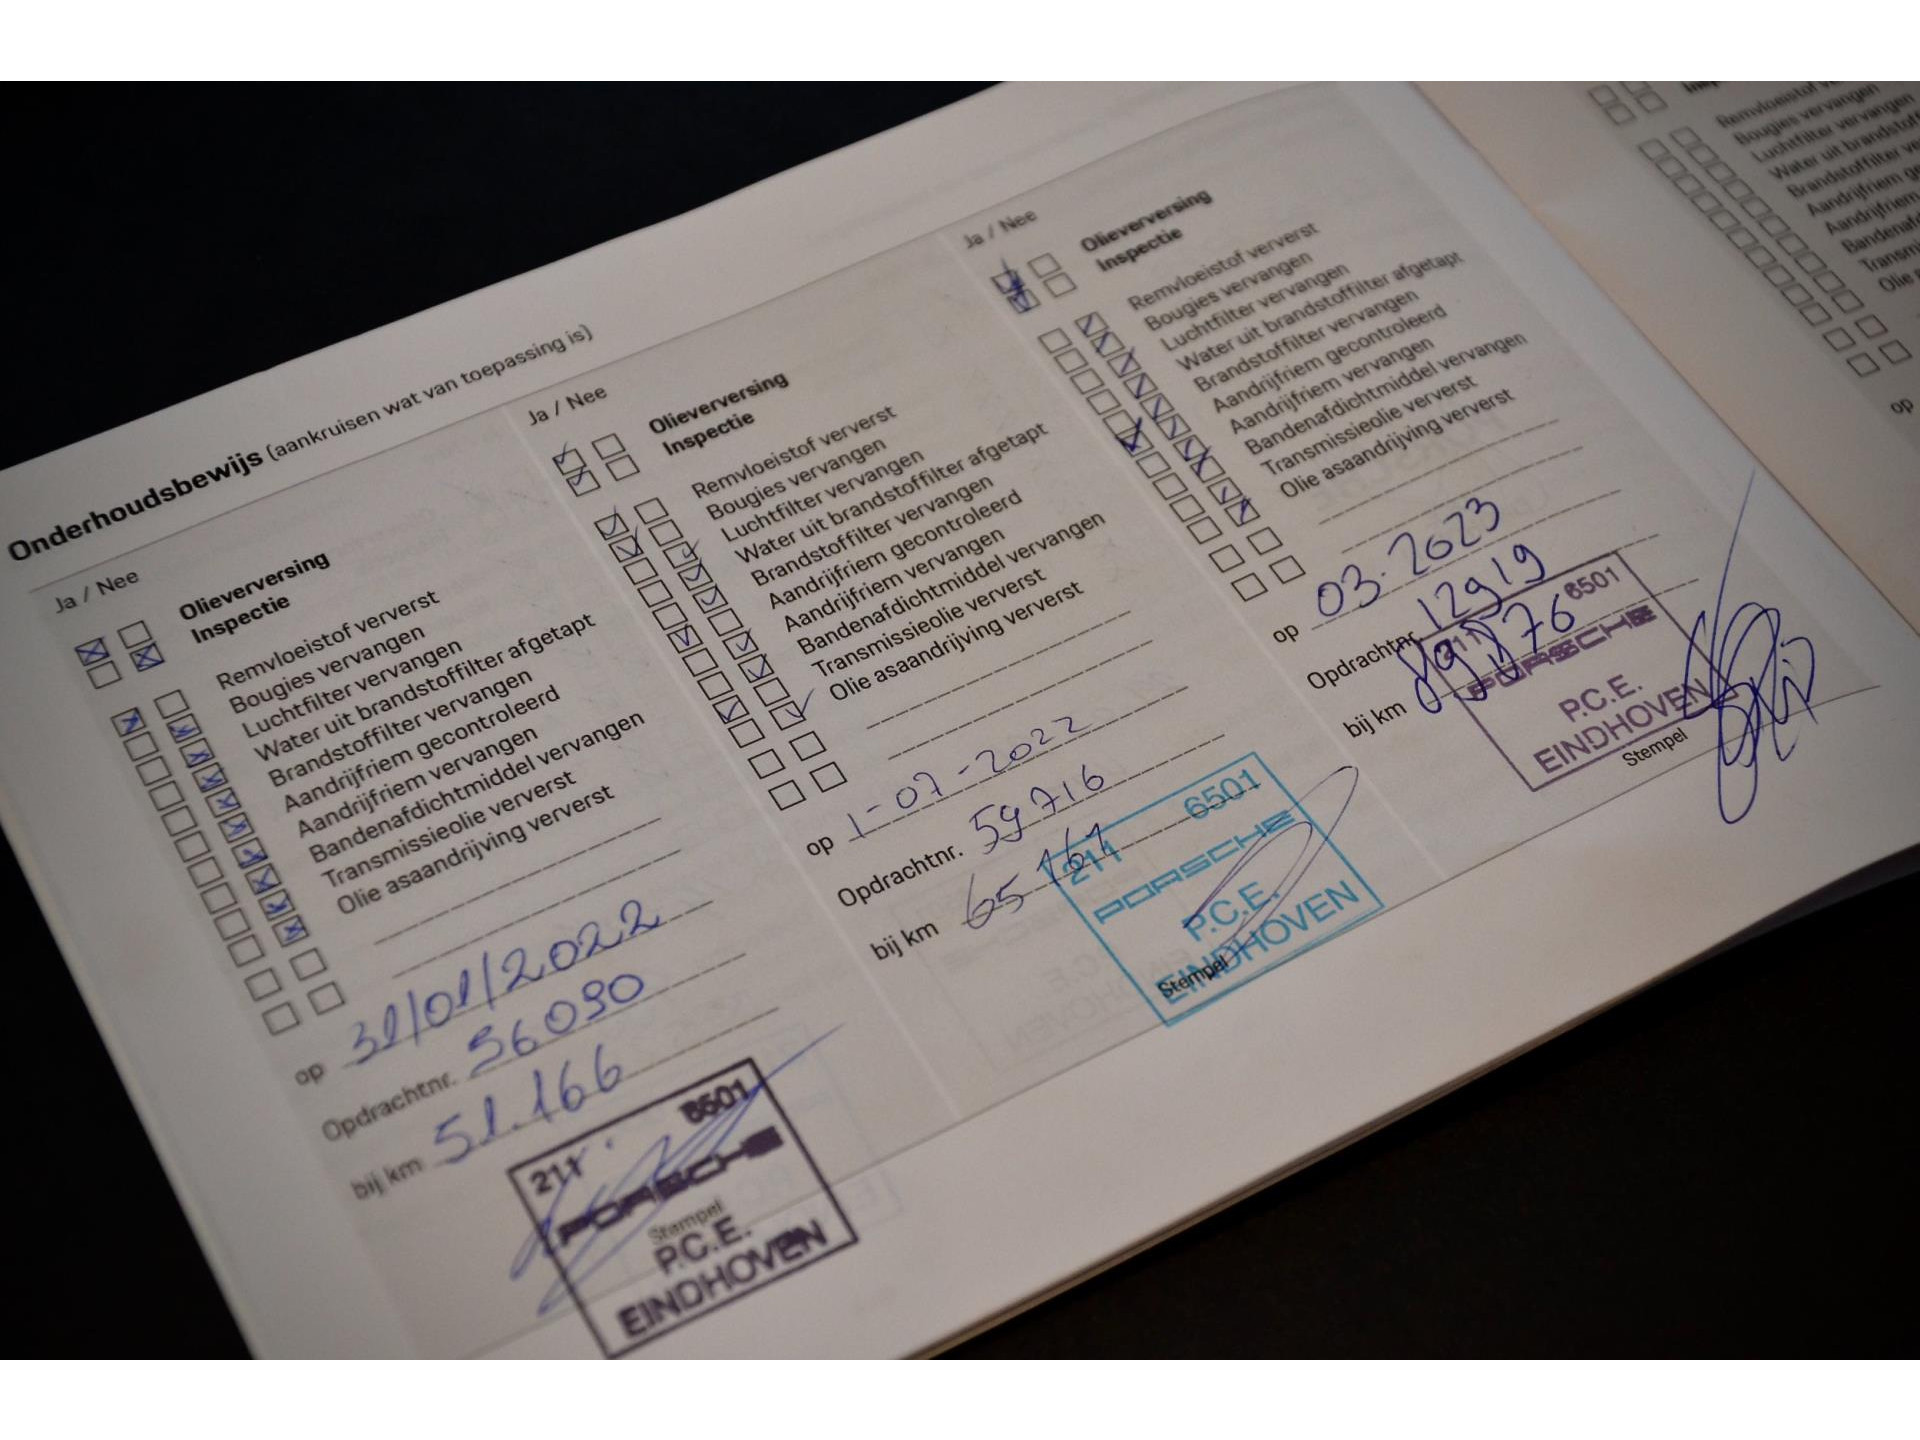 Onderhoudsbewijs (aankruisen wat van toepassing is)
Ja / Nee
Olieverversing
Inspectie
Remvloeistof ververst
Bougies vervangen
Luchtfilter vervangen
Water uit brandstoffilter afgetapt
Brandstoffilter vervangen
Aandrijfriem gecontroleerd
Aandrijfriem vervangen
Bandenafdichtmiddel vervangen
Transmissieolie ververst
Olie asaandrijving ververst
op 31/01/2022
Opdrachtnr. 56090
bij km 51.166
211 6501
PORSCHE
Stempel
P.C.E.
EINDHOVEN
Ja / Nee
Olieverversing
Inspectie
Remvloeistof ververst
Bougies vervangen
Luchtfilter vervangen
Water uit brandstoffilter afgetapt
Brandstoffilter vervangen
Aandrijfriem gecontroleerd
Aandrijfriem vervangen
Bandenafdichtmiddel vervangen
Transmissieolie ververst
Olie asaandrijving ververst
op 1-07-2022
Opdrachtnr. 59716
bij km 65161
211 6501
PORSCHE
P.C.E.
EINDHOVEN
Stempel
Ja / Nee
Olieverversing
Inspectie
Remvloeistof ververst
Bougies vervangen
Luchtfilter vervangen
Water uit brandstoffilter afgetapt
Brandstoffilter vervangen
Aandrijfriem gecontroleerd
Aandrijfriem vervangen
Bandenafdichtmiddel vervangen
Transmissieolie ververst
Olie asaandrijving ververst
op 03.2023
Opdrachtnr. 12919
bij km 89876
211 6501
PORSCHE
P.C.E.
EINDHOVEN
Stempel
Remvloeistof
Bougies vervangen
Luchtfilter vervangen
Water uit brandstoff
Brandstoffilter
Aandrijfriem
Aandrijfriem
op